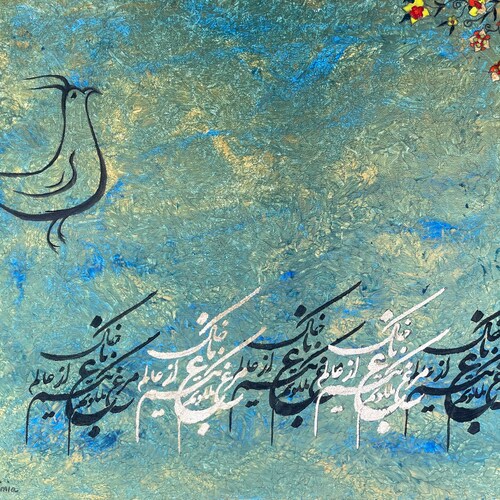 مرغ باغ ملکوتم نیم از عالم خاک
مرغ باغ ملکوتم نیم از عالم خاک
مرغ باغ ملکوتم نیم از عالم خاک
مرغ باغ ملکوتم نیم از عالم خاک
مرغ باغ ملکوتم نیم از عالم خاک